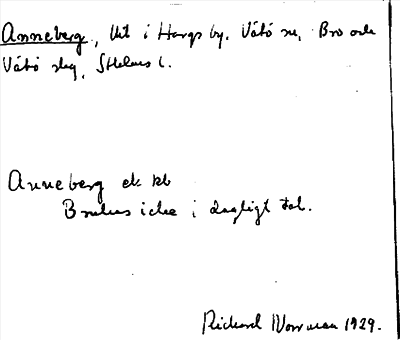 Anneberg, Ut i Hargs by, Vätö sn, Bro och
Vätö skg, Sthlms l.
Anneberg ek kb
Brukas icke i dagligt tal.
Richard Norrman 1929.